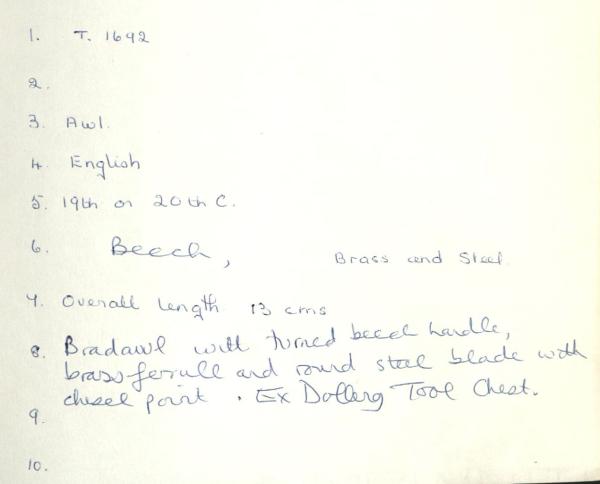 1. T. 1692
2.
3. Awl.
4. English
5. 19th or 20th C.
6. Beech, Brass and Steel
7. Overall length 13 cms
8. Bradawl with turned beech handle,
brass ferrule and round steel blade with
chisel point. Ex Tool Chest.
9.
10.